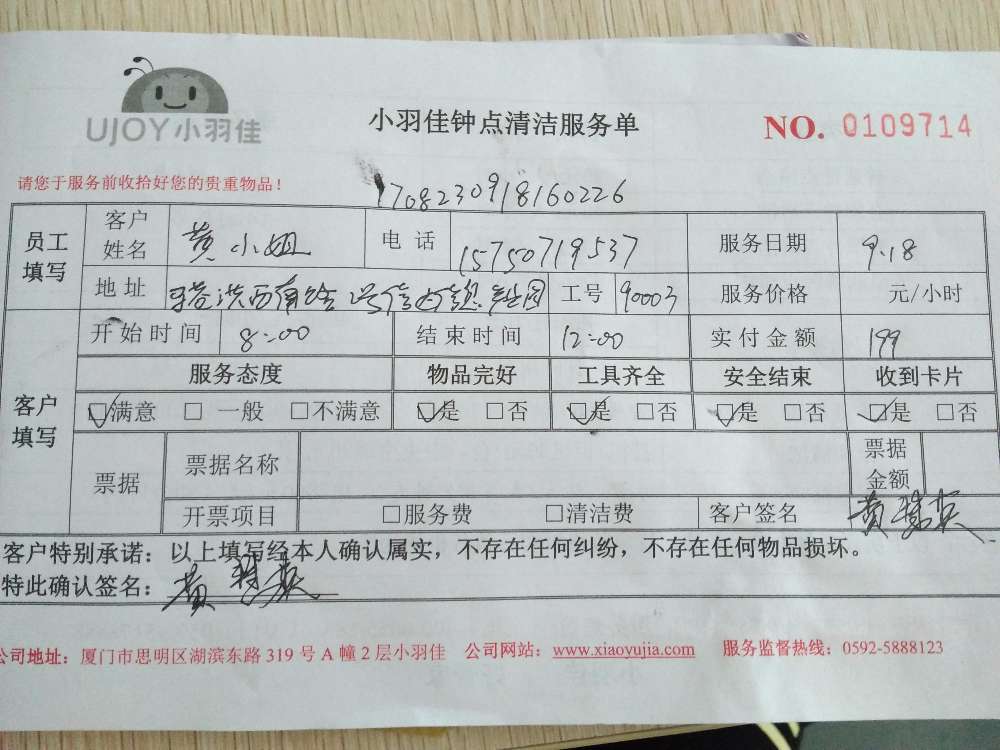 UJOY小羽佳
小羽佳钟点清洁服务单
NO. 0109714
请您于服务前收拾好您的贵重物品!
170823091816 0226
员工填写 客户姓名 黄小姐 电话 15750719537 服务日期 9.18
地址 工号 90003 服务价格 元/小时
客户填写 开始时间 8:00 结束时间 12:00 实付金额 199
服务态度 物品完好 工具齐全 安全结束 收到卡片
☑满意 □一般 □不满意 ☑是 □否 ☑是 □否 ☑是 □否 ☑是 □否
票据 票据名称 票据金额
开票项目 □服务费 □清洁费 客户签名 黄
客户特别承诺：以上填写经本人确认属实，不存在任何纠纷，不存在任何物品损坏。
特此确认签名：黄
公司地址：厦门市思明区湖滨东路 319 号 A 幢 2 层小羽佳 公司网站：www.xiaoyujia.com 服务监督热线：0592-5888123